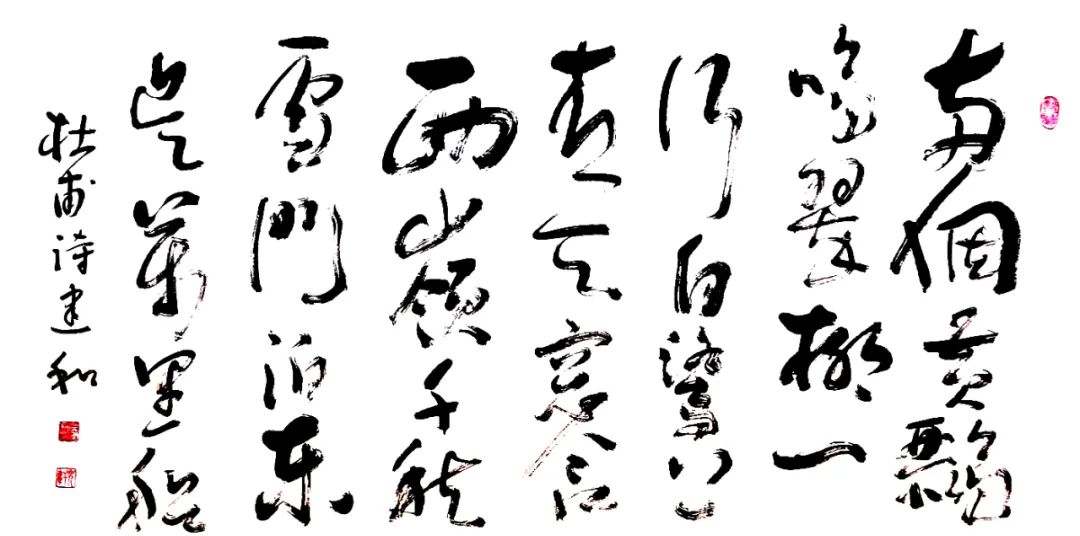 兩個黃鸝
鳴翠柳一
行白鷺上
青天窗含
西嶺千秋
雪門泊東
吳萬里船
杜甫詩建和